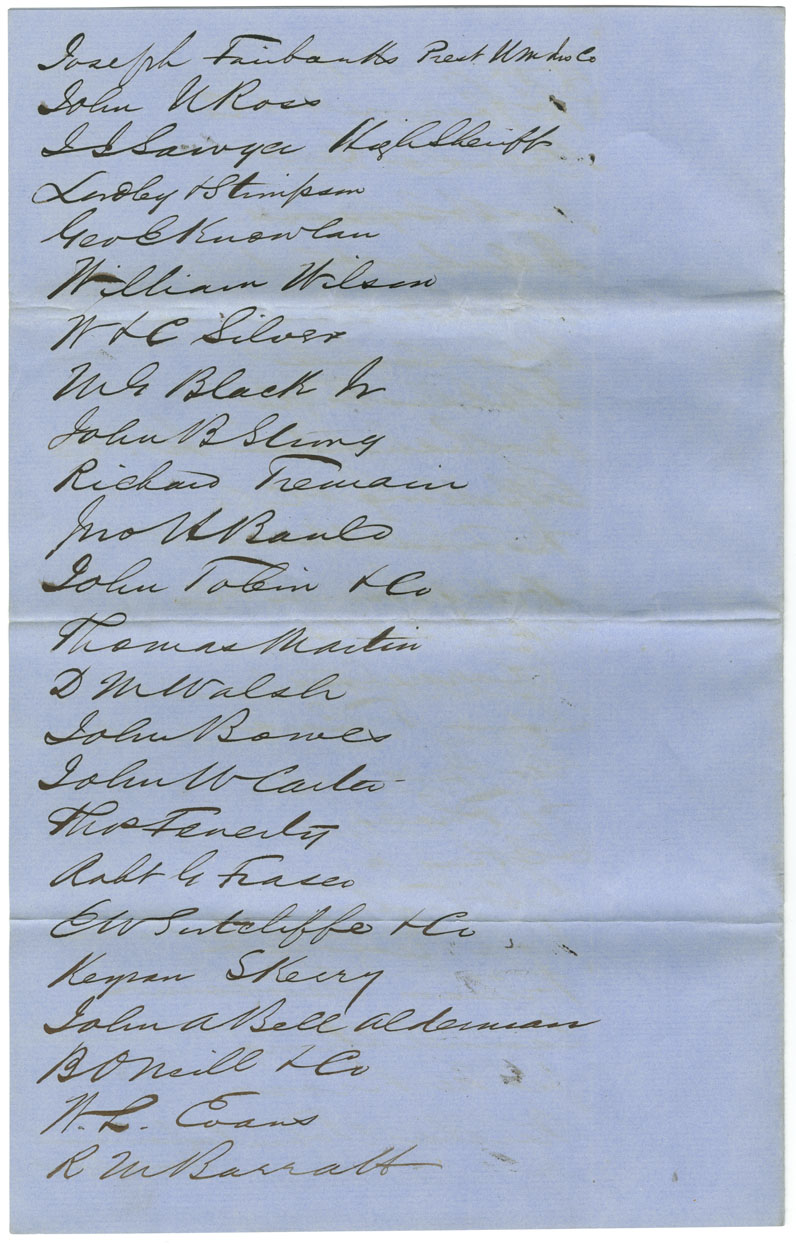 Joseph Fairbanks Prest U M Ins Co
John U Ross
J J Sawyer High Sheriff
Lordly & Stimpson
Geo E Knowlan
William Wilson
W & C Silver
M G Black Jr
John B Strong
Richard Tremain
Jno H Banld
John Tobin & Co
Thomas Martin
D M Walsh
John Bowes
John W Carter
Thos Fenerty
Robt G Fraser
E W Sutcliffe & Co
Keyran Skerry
John A Bell Alderman
B ONeill & Co
W. L. Evans
R M Barratt